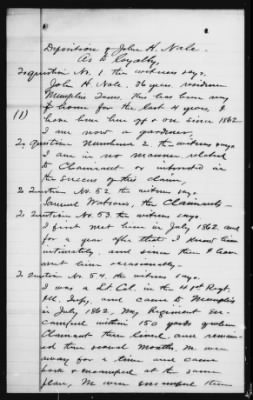 Deposition of John H. Nale.
As to Loyalty,
To question No. 1 the witness says.
John H. Nale, 36 years, residence
Memphis Tenn, this has been my
home for the last 4 years, I
(1)
have been here off & on since 1862
I am now a gardener,
To Question Number 2 the witness says
I am in no manner related
to Claimant or interested in
the success of this claim,
To Question No. 52. the witness says
Samuel Watson, the Claimant—
To Question No. 53. the witness says
I first met him in July 1862. and
for a year after that I knew him
intimately, and since then I have
met him occasionally—
To Question No. 54. the witness says.
I was a Lt. Col. in the 41st Regt.
Ill. Infy, and came to Memphis
in July 1862, My Regiment en-
camped within 150 yards where
Claimant then lived, and remain-
ed there several months, We were
away for a time and came
back & encamped at the same
place, We were encamped there